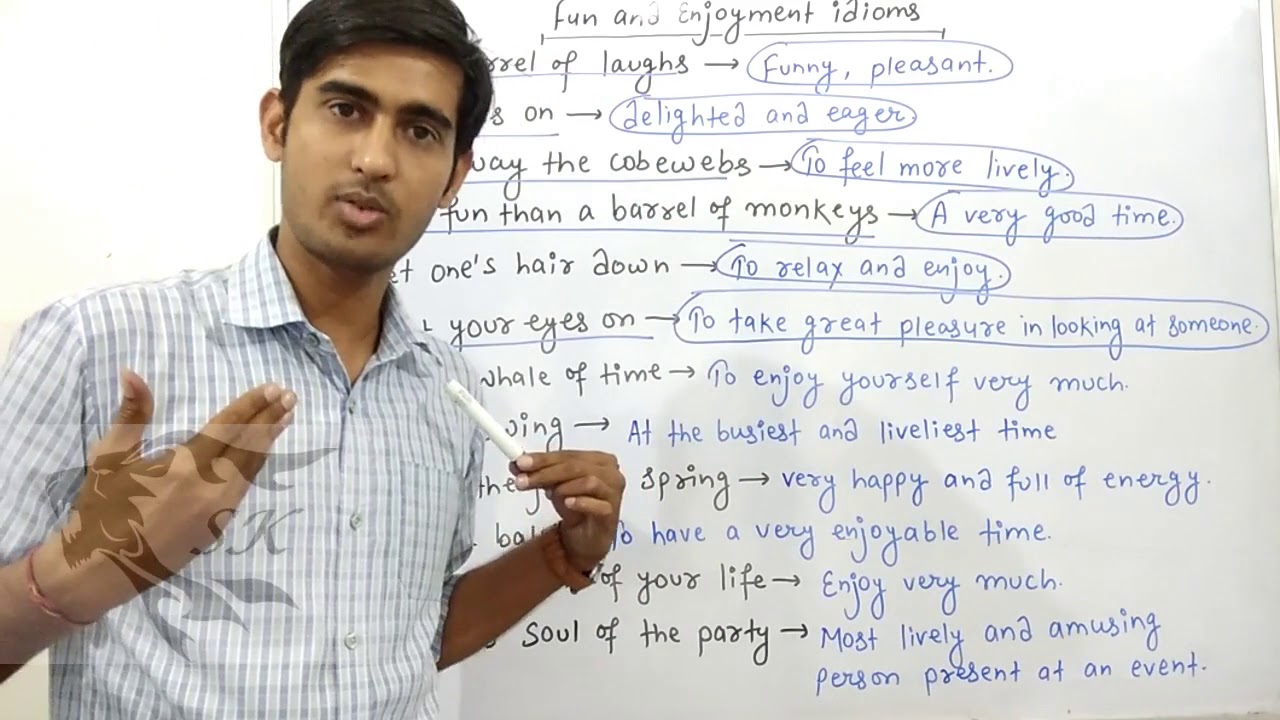 Fun and Enjoyment idioms
rrel of laughs → Funny, pleasant.
s on → delighted and eager
way the cobewebs → To feel more lively.
fun than a barrel of monkeys → A very good time.
et one's hair down → To relax and enjoy.
your eyes on → To take great pleasure in looking at someone.
whale of time → To enjoy yourself very much.
wing → At the busiest and liveliest time
the spring → very happy and full of energy.
ba To have a very enjoyable time.
of your life → Enjoy very much.
soul of the party → Most lively and amusing
person present at an event.
SK